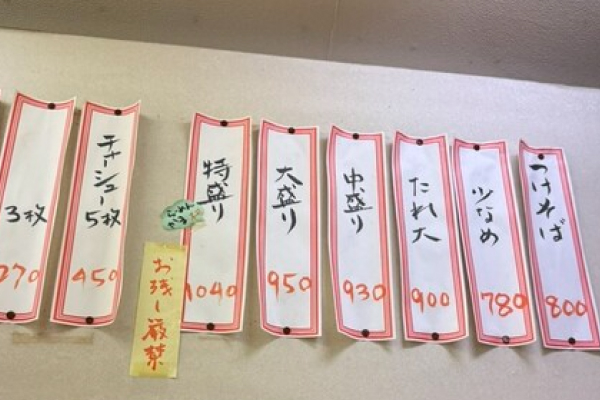 つけそば
800
少なめ
780
たれ大
900
中盛り
930
大盛り
950
特盛り
1040
お残し厳禁
チャーシュー5枚
450
3枚
270